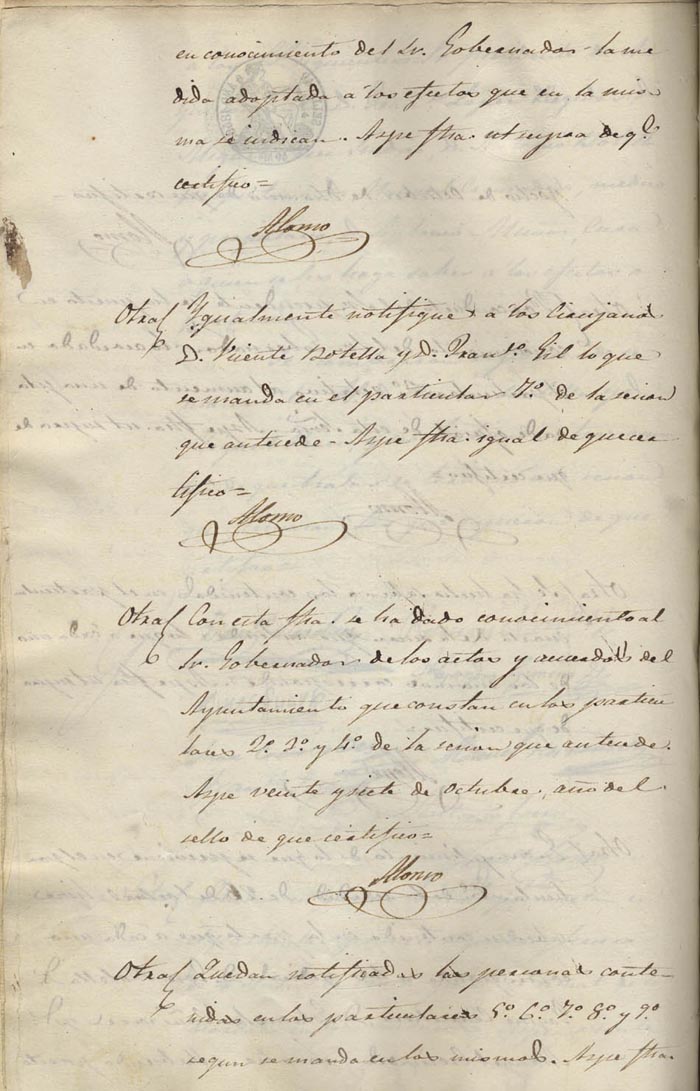 en conocimiento del Sr. Gobernador la me
dida adoptada a los efectos que en la mis
ma se indican. Aspe fha. ut supra de q.e
certifico=
Alonso
Otra Ygualmente notifiqué a los Cirujanos
D. Vicente Botella y D. Fran.co Gil lo que
se manda en el particular 7.o de la sesion
que antecede. Aspe fha. igual de que cer
tifico=
Alonso
Otra Con esta fha. se ha dado conocimiento al
Sr. Gobernador de los actos y acuerdos del
Ayuntamiento que constan en los particu
lares 2.o 3.o y 4.o de la sesion que antecede.
Aspe veinte y siete de Octubre, año del
sello de que certifico=
Alonso
Otra Quedan notificadas las personas conte
nidas en los particulares 5.o 6.o 7.o 8.o y 9.o
segun se manda en los mismos. Aspe fha.